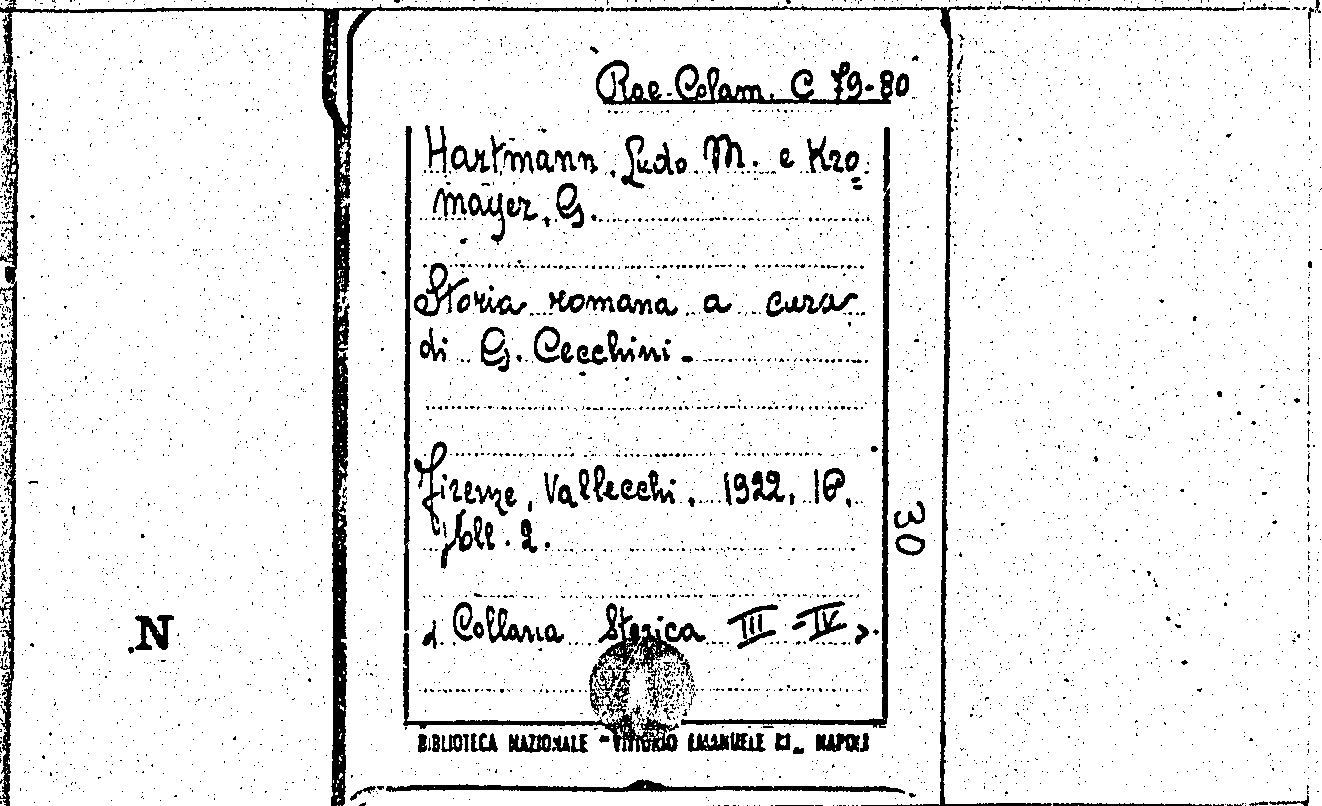 Rac. Colam. C 79-80
Hartmann, Ludo M. e Kro=
mayer, G.
Storia romana a cura
di G. Cecchini.
Firenze, Vallecchi, 1922, 16°.
Voll. 2.
< Collana Storica III-IV >.
30
N
BIBLIOTECA NAZIONALE "VITTORIO EMANUELE III" NAPOLI